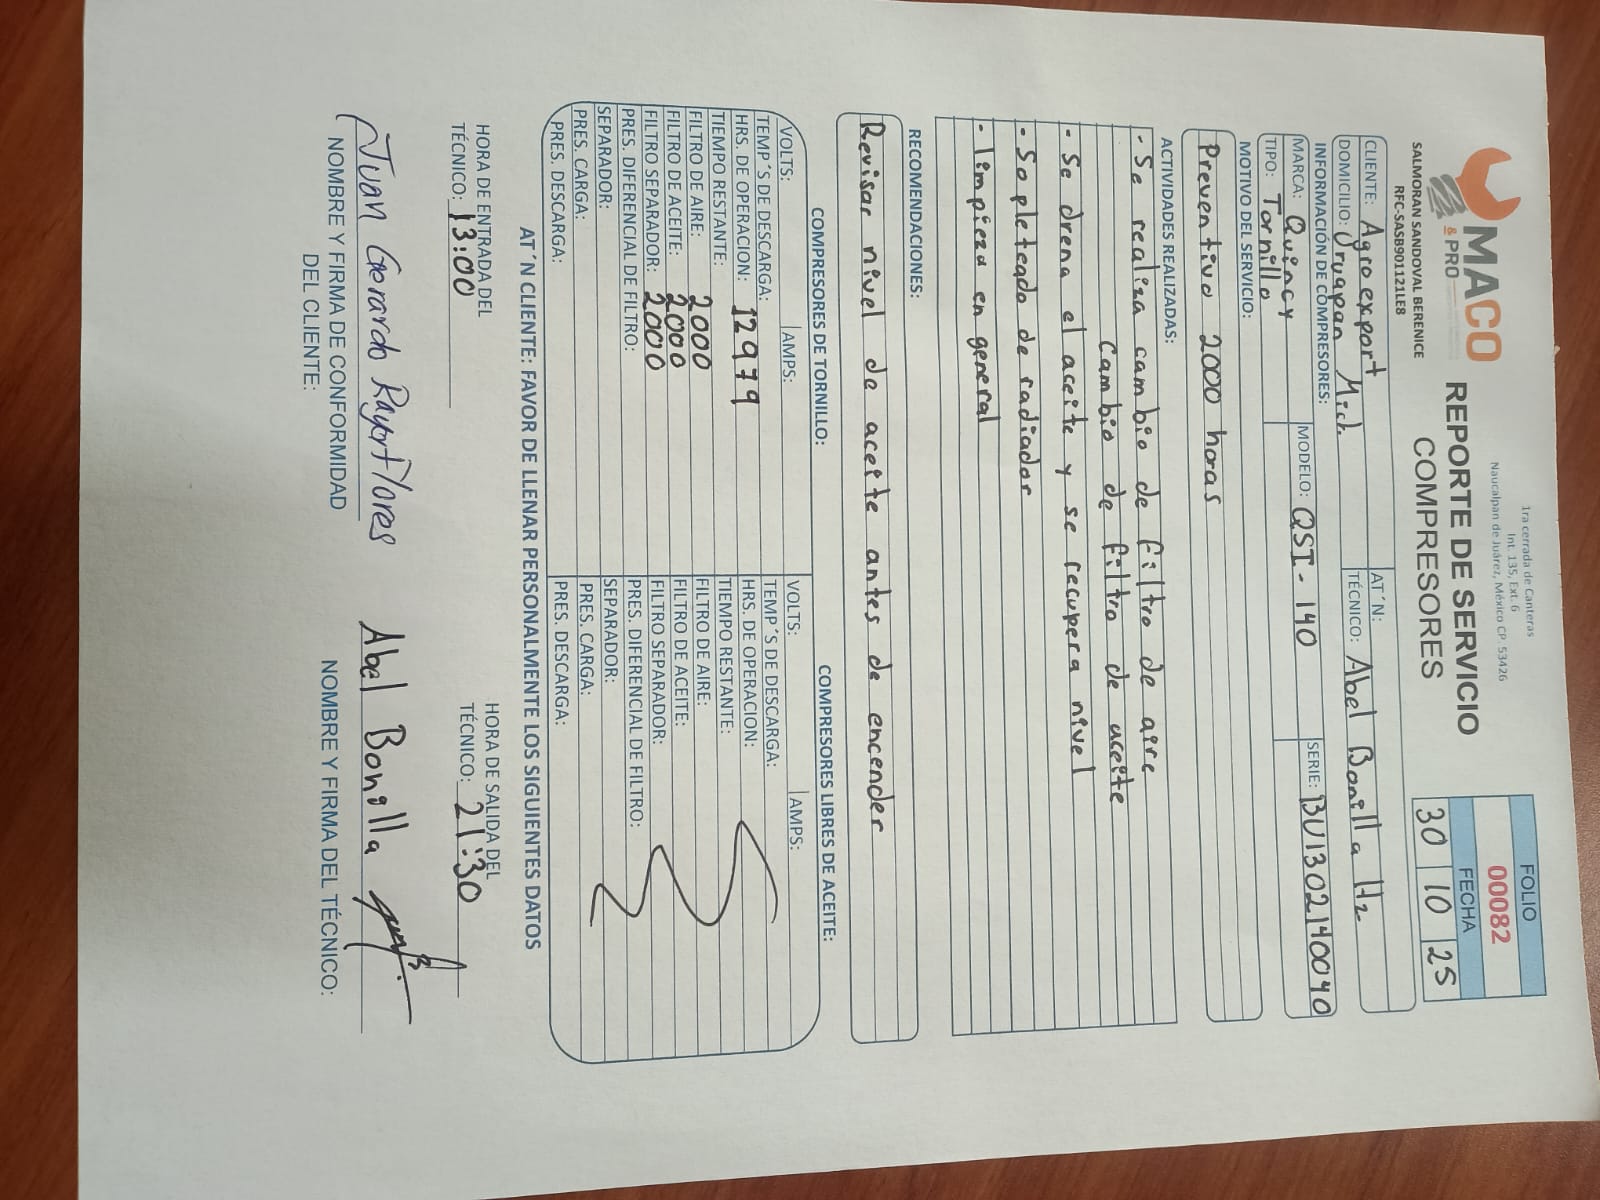 MACO
& PRO
SALMORAN SANDOVAL BERENICE
RFC-SASB901121LE8
1ra cerrada de Canteras
Int. 135, Ext. 6
Naucalpan de Juárez, México CP. 53426
REPORTE DE SERVICIO
COMPRESORES
FOLIO
00082
FECHA
30 10 25
CLIENTE: Agroexport AT´N:
DOMICILIO: Uruapan Mich. TÉCNICO: Abel Bonilla Hz
INFORMACIÓN DE COMPRESORES:
MARCA: Quincy MODELO: QSI-140 SERIE: BU1302140040
TIPO: Tornillo
MOTIVO DEL SERVICIO:
Preventivo 2000 horas
ACTIVIDADES REALIZADAS:
- Se realiza cambio de filtro de aire
cambio de filtro de aceite
- Se drena el aceite y se recupera nivel
- Sopleteado de radiador
- limpieza en general
RECOMENDACIONES:
Revisar nivel de aceite antes de encender
COMPRESORES DE TORNILLO:
VOLTS: AMPS:
TEMP´S DE DESCARGA:
HRS. DE OPERACION: 12979
TIEMPO RESTANTE:
FILTRO DE AIRE: 2000
FILTRO DE ACEITE: 2000
FILTRO SEPARADOR: 2000
PRES. DIFERENCIAL DE FILTRO:
SEPARADOR:
PRES. CARGA:
PRES. DESCARGA:
COMPRESORES LIBRES DE ACEITE:
VOLTS: AMPS:
TEMP´S DE DESCARGA:
HRS. DE OPERACION:
TIEMPO RESTANTE:
FILTRO DE AIRE:
FILTRO DE ACEITE:
FILTRO SEPARADOR:
PRES. DIFERENCIAL DE FILTRO:
SEPARADOR:
PRES. CARGA:
PRES. DESCARGA:
AT´N CLIENTE: FAVOR DE LLENAR PERSONALMENTE LOS SIGUIENTES DATOS
HORA DE ENTRADA DEL
TÉCNICO: 13:00
HORA DE SALIDA DEL
TÉCNICO: 21:30
Juan Gerardo Flores
NOMBRE Y FIRMA DE CONFORMIDAD
DEL CLIENTE:
Abel Bonilla
NOMBRE Y FIRMA DEL TÉCNICO: